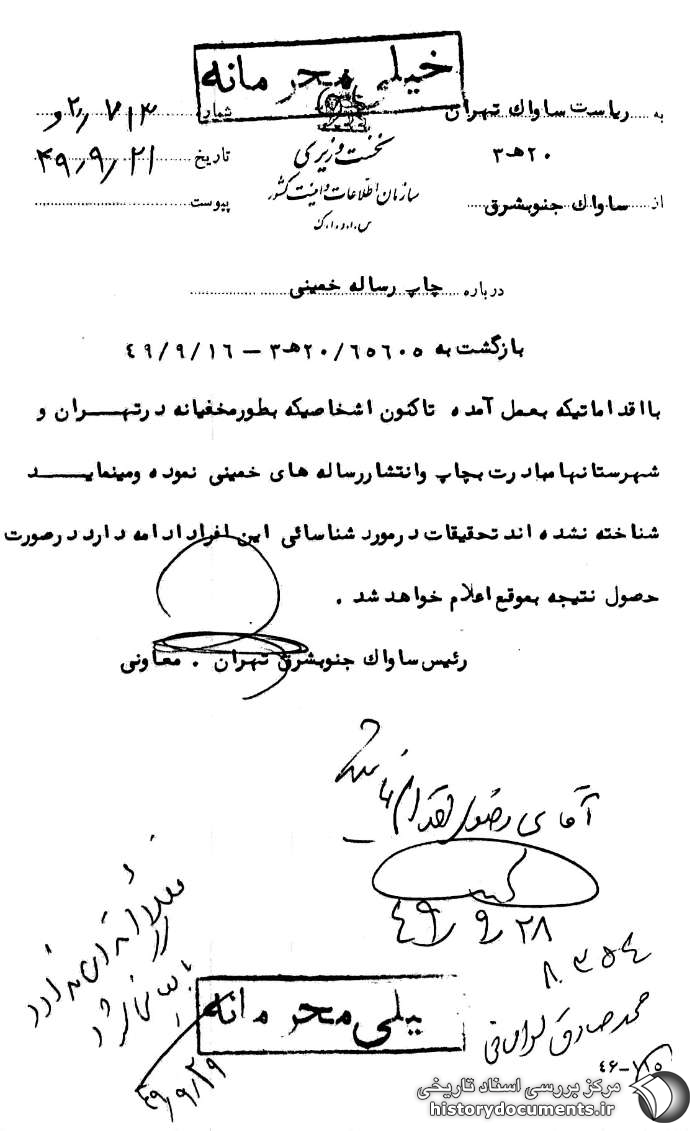 خیلی محرمانه
به ریاست ساواک تهران
۲۰هـ۳
از ساواک جنوبشرق
نخست وزیری
سازمان اطلاعات و امنیت کشور
س.ا.و.ا.ک
شماره ۲/۷۱۳و
تاریخ ۴۹/۹/۲۱
پیوست
درباره چاپ رساله خمینی
بازگشت به ۲۰/۶۵۶۰۵هـ۳ - ۴۹/۹/۱۶
بااقداماتیکه بعمل آمده تاکنون اشخاصیکه بطورمخفیانه درتهران و
شهرستانهامبادرت بچاپ وانتشاررساله های خمینی نموده ومینماید
شناخته نشده اند تحقیقات درمورد شناسائی این افراد ادامه دارد درصورت
حصول نتیجه بموقع اعلام خواهد شد .
رئیس ساواک جنوبشرق تهران . معاونی
آقای رضوی اقدام
۴۹/۹/۲۸
۸۰۳۵۴
محمد صادق
بایگانی شود
۴۹/۹/۲۹
خیلی محرمانه
مرکز بررسی اسناد تاریخی
historydocuments.ir